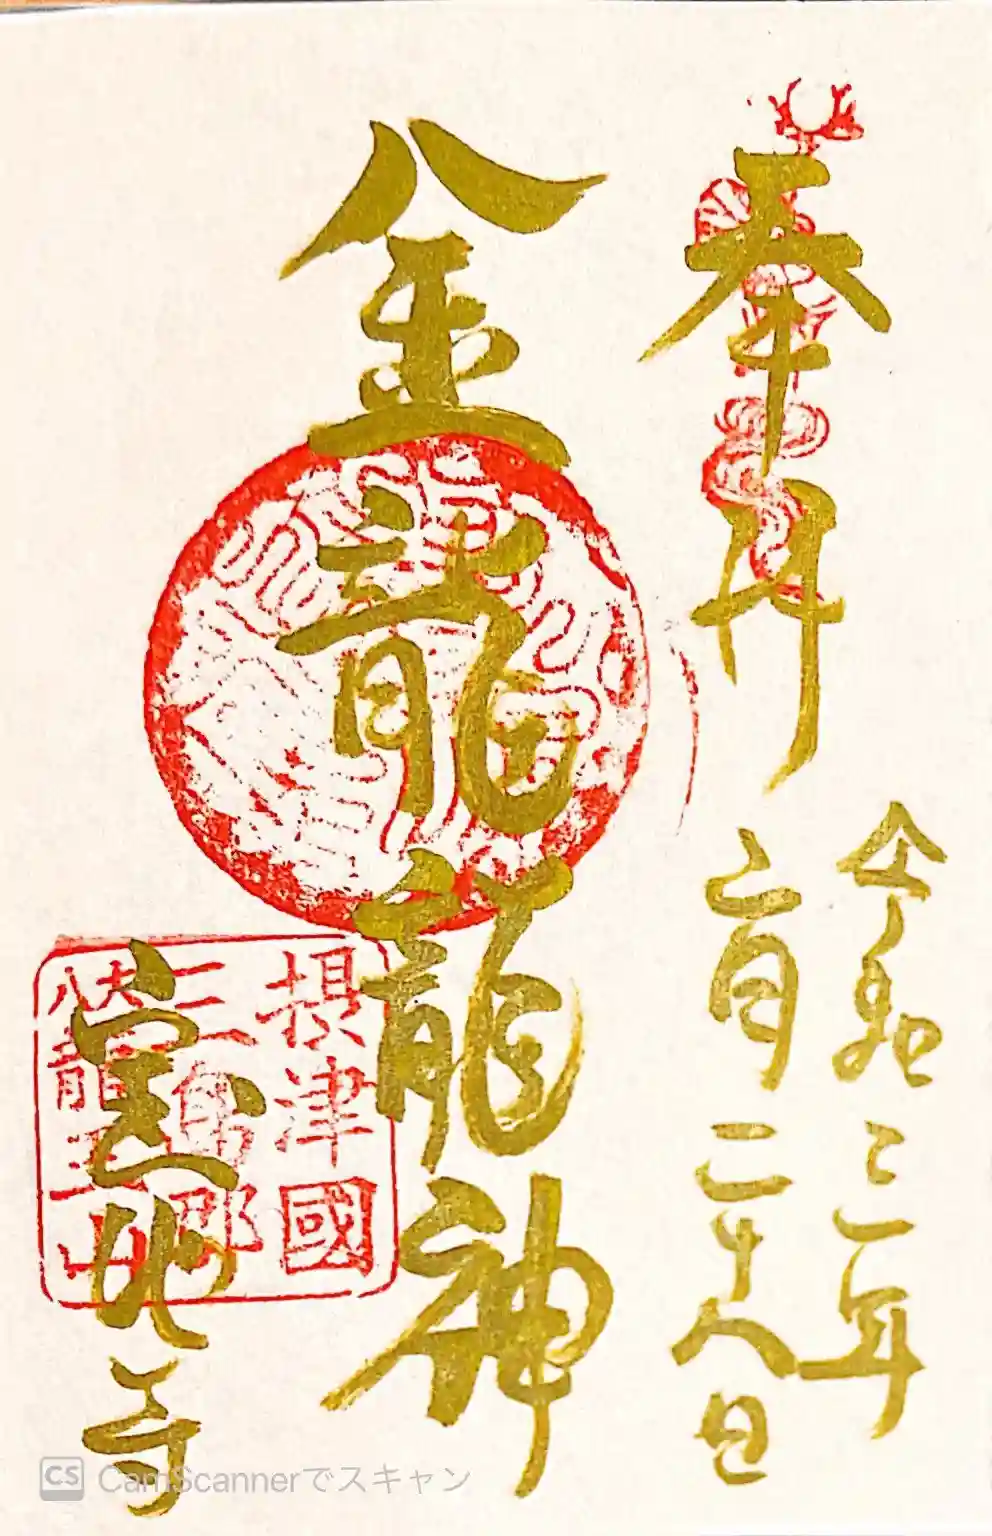 奉拝
令和三年
月二十八日
金龍龍神
寺
摂津國
三島郡
八大龍王山
CS CamScannerでスキャン